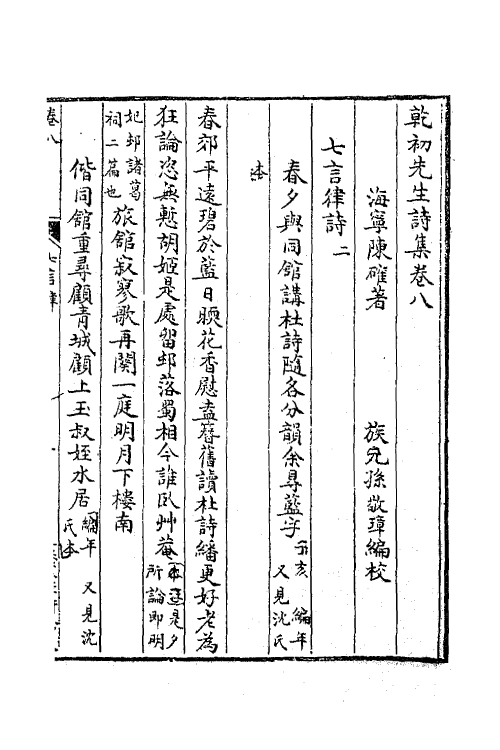 乾初先生詩集卷八
海寧陳確著　族元孫敬璋編校
七言律詩二
春夕與同館講杜詩隨各分韻余得藍字丁亥　編年　又見沈氏
本
春郊平遠碧於藍日暖花香慰盍簪舊讀杜詩繙更好老為
狂論恣無慙胡姬是處留邨落蜀相今誰臥艸菴本註是夕所論即明
妃邨諸葛祠二篇也旅館寂寥歌再闋一庭明月下樓南
偕同館重尋顧青城顧上玉叔姪水居編年　又見沈氏本
卷八　七言律